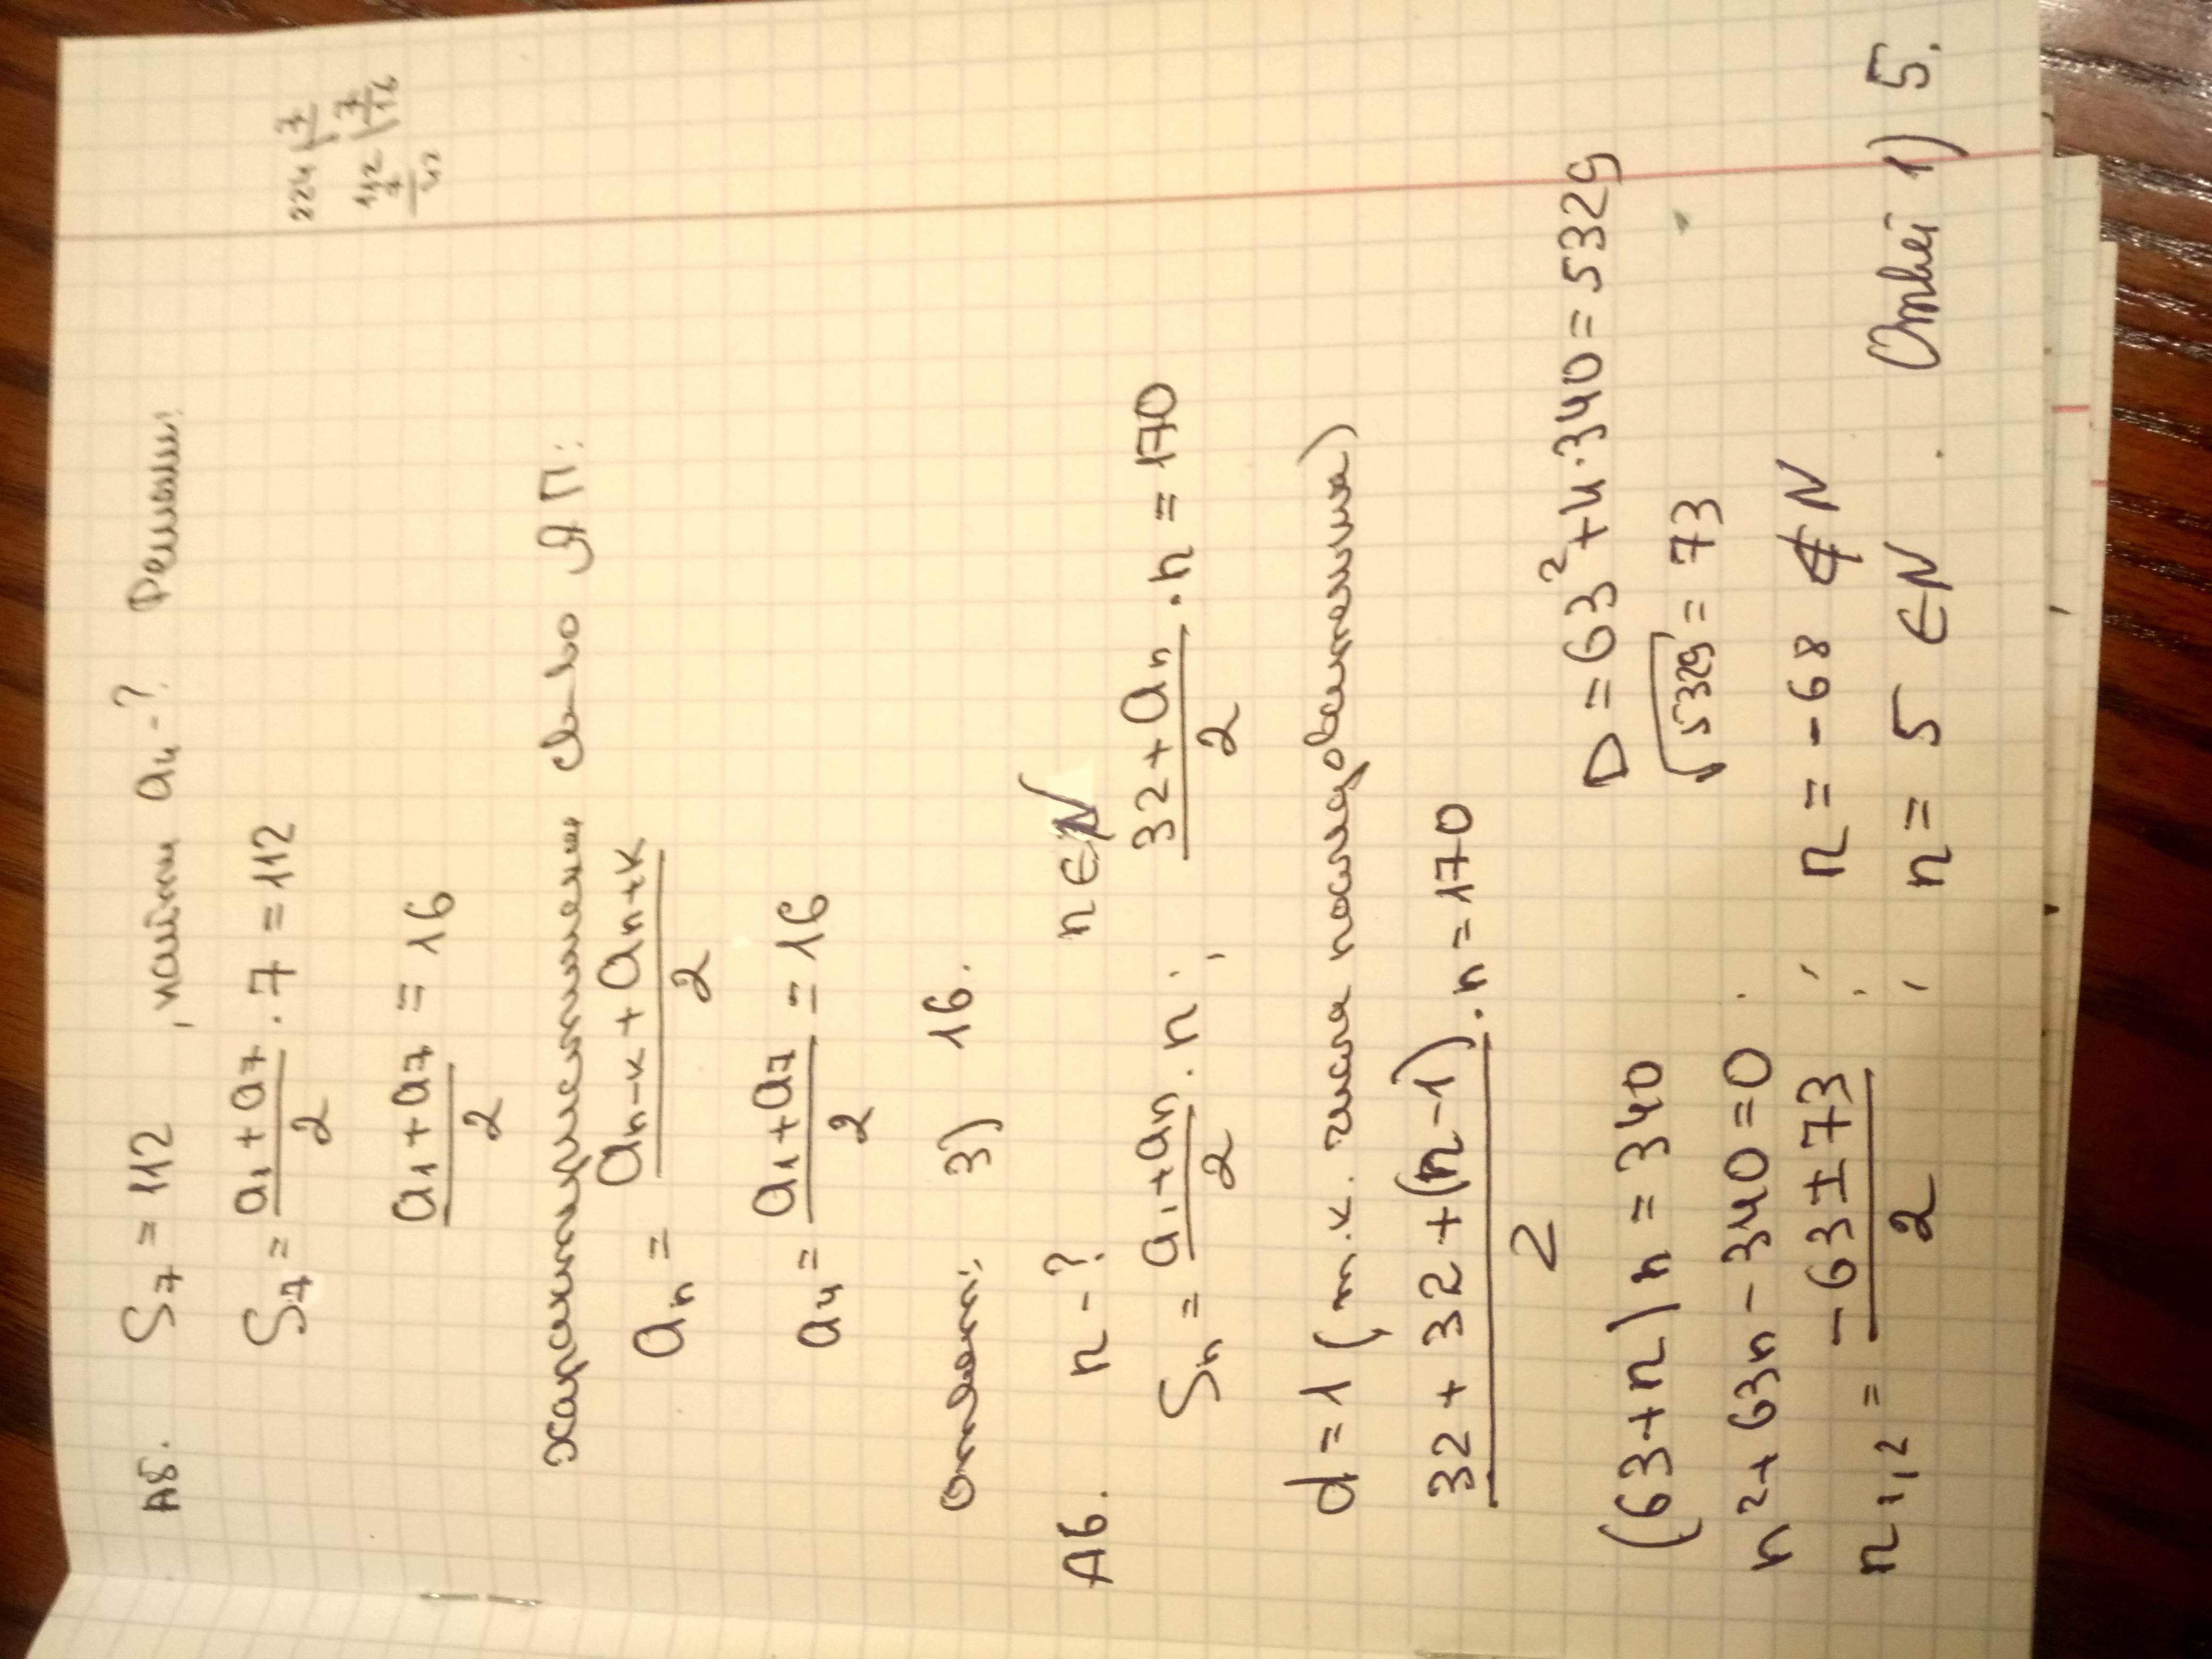 А5. S₇ = 112 , найти a₄ - ? Решение:
S₇ = (a₁ + a₇)/2 · 7 = 112
224 | 7
(a₁ + a₇)/2 = 16
112 | 7
7 16
42
характеристичем св-во АП:
aₙ = (aₙ₋ₖ + aₙ₊ₖ)/2
a₄ = (a₁ + a₇)/2 = 16
Ответ: 3) 16.
А6. n - ? n ∈ N
Sₙ = (a₁ + aₙ)/2 · n ; (32 + aₙ)/2 · n = 170
d = 1 (т.к. числа последовательные)
(32 + 32 + (n - 1))/2 · n = 170
(63 + n) n = 340 D = 63² + 4·340 = 5329
n² + 63n - 340 = 0 ; √5329 = 73
n₁,₂ = (-63 ± 73)/2 ; n = -68 ∉ N
n = 5 ∈ N . Ответ 1) 5.